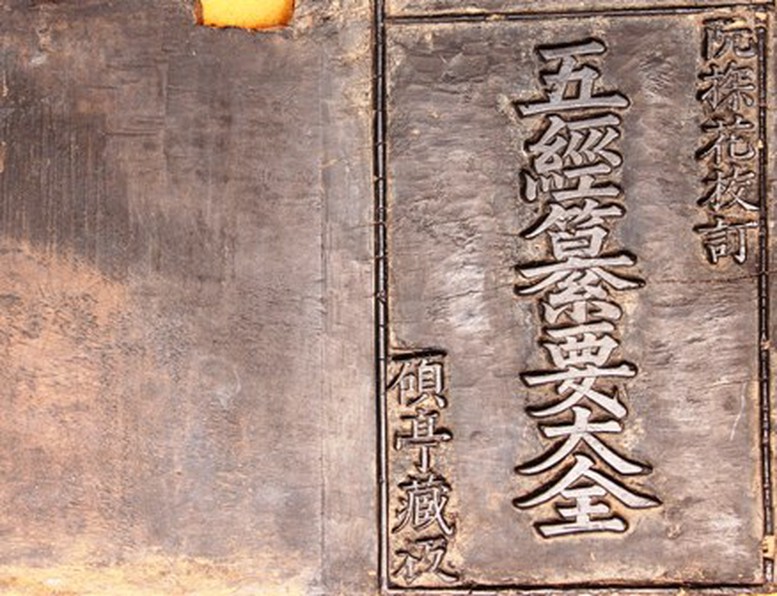 阮探花校訂
五經纂要大全
碩亭藏板